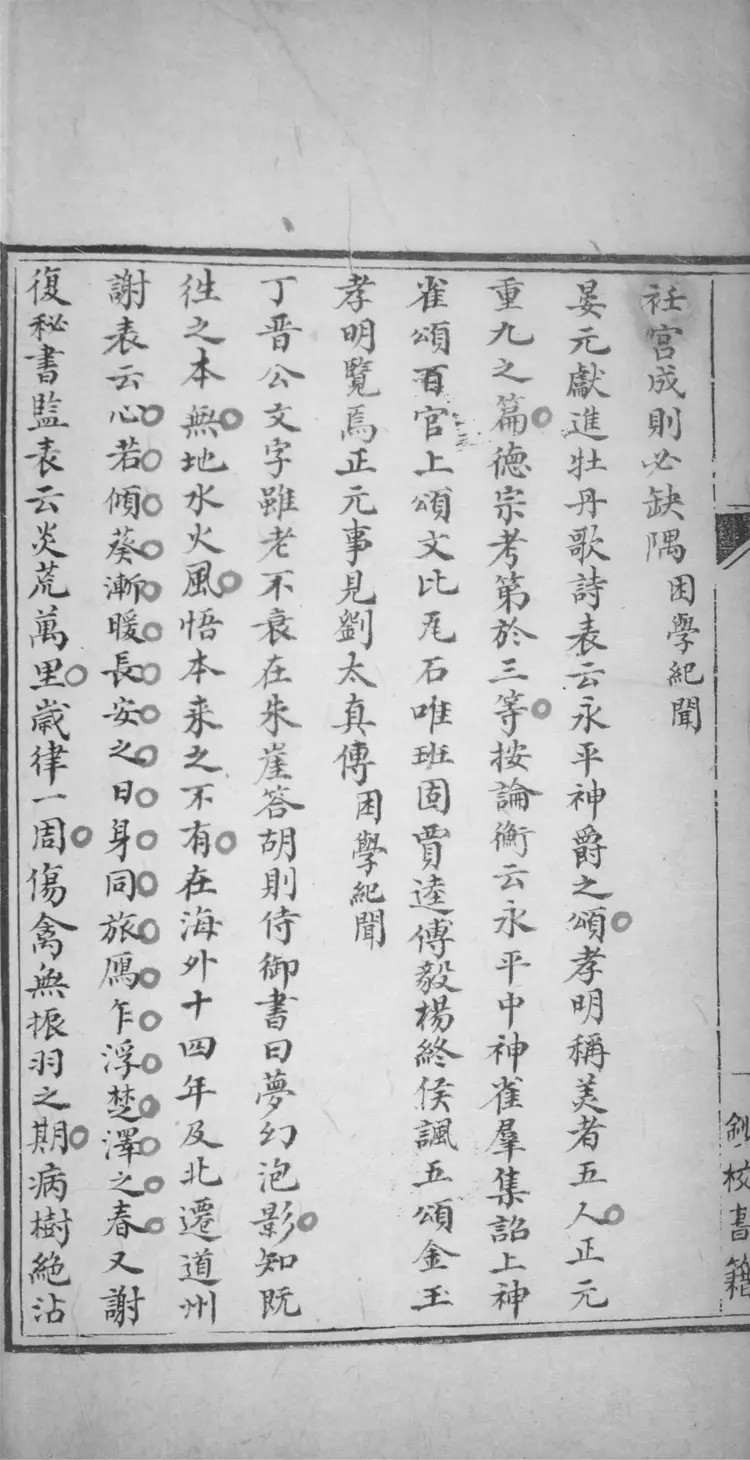 衽宫成則必缺隅 困學紀聞
晏元獻進牡丹歌詩表云永平神爵之頌孝明稱美者五人正元
重九之篇德宗考第於三等按論衡云永平中神雀羣集詔上神
雀頌百官上頌文比瓦石唯班固賈逵傅毅楊終侯諷五頌金玉
孝明覽焉正元事見劉太真傳 困學紀聞
丁晋公文字雖老不衰在朱崖答胡則侍御書曰夢幻泡影知既
徃之本無地水火風悟本来之不有在海外十四年及北遷道州
謝表云心若傾葵漸暖長安之日身同旅鴈乍浮楚澤之春又謝
復秘書監表云炎荒萬里歲律一周傷禽無振羽之期病樹絶沾
校書籍